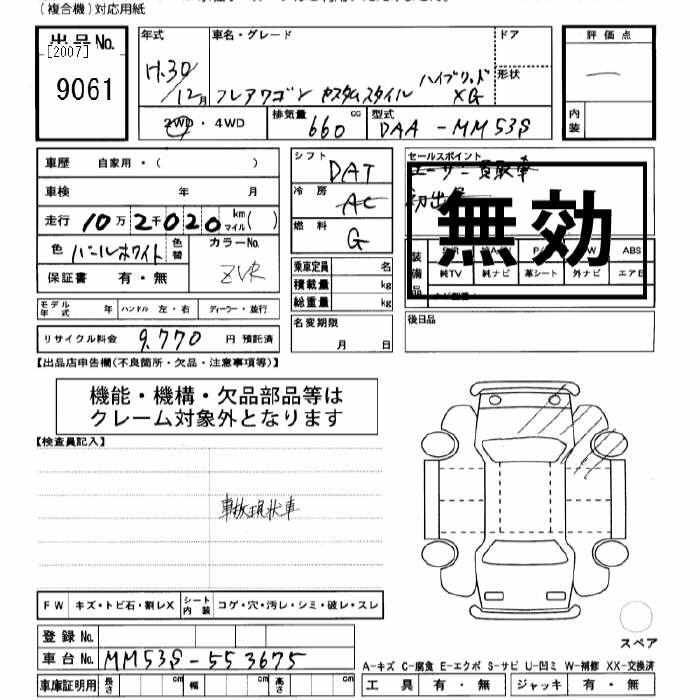 (複合機)対応用紙
出品No.
[2007]
9061
年式 車名・グレード ドア
形状
H.30
12月 フレアワゴン カスタムスタイル ハイブリッド
XG
2WD・4WD 排気量 660 cc 型式 DAA-MM53S
評価点
内装
車歴 自家用・( )
車検 年 月
走行 10万2千020 km マイル( )
色 パールホワイト 色替 カラーNo. ZVR
保証書 有・無
モデル年式 年 ハンドル 左・右 ディーラー・並行
リサイクル料金 9.770 円 預託済
シフト DAT
冷房 AC
燃料 G
乗車定員 名
積載量 kg
総重量 kg
名変期限
月 日
セールスポイント
ユーザー買取車
無効
装備品
ABS
純TV 純ナビ 革シート 外ナビ エアB
後日品
【出品店申告欄(不良箇所・欠品・注意事項等)】
機能・機構・欠品部品等は
クレーム対象外となります
【検査員記入】
事故現状車
FW キズ・トビ石・割レX シート内装 コゲ・穴・汚レ・シミ・破レ・スレ
登録No.
車台No. MM53S-553675
車庫証明用 長さ cm 幅 cm 高さ cm
スペア
A-キズ C-腐食 E-エクボ S-サビ U-凹ミ W-補修 XX-交換済
工具 有・無 ジャッキ 有・無